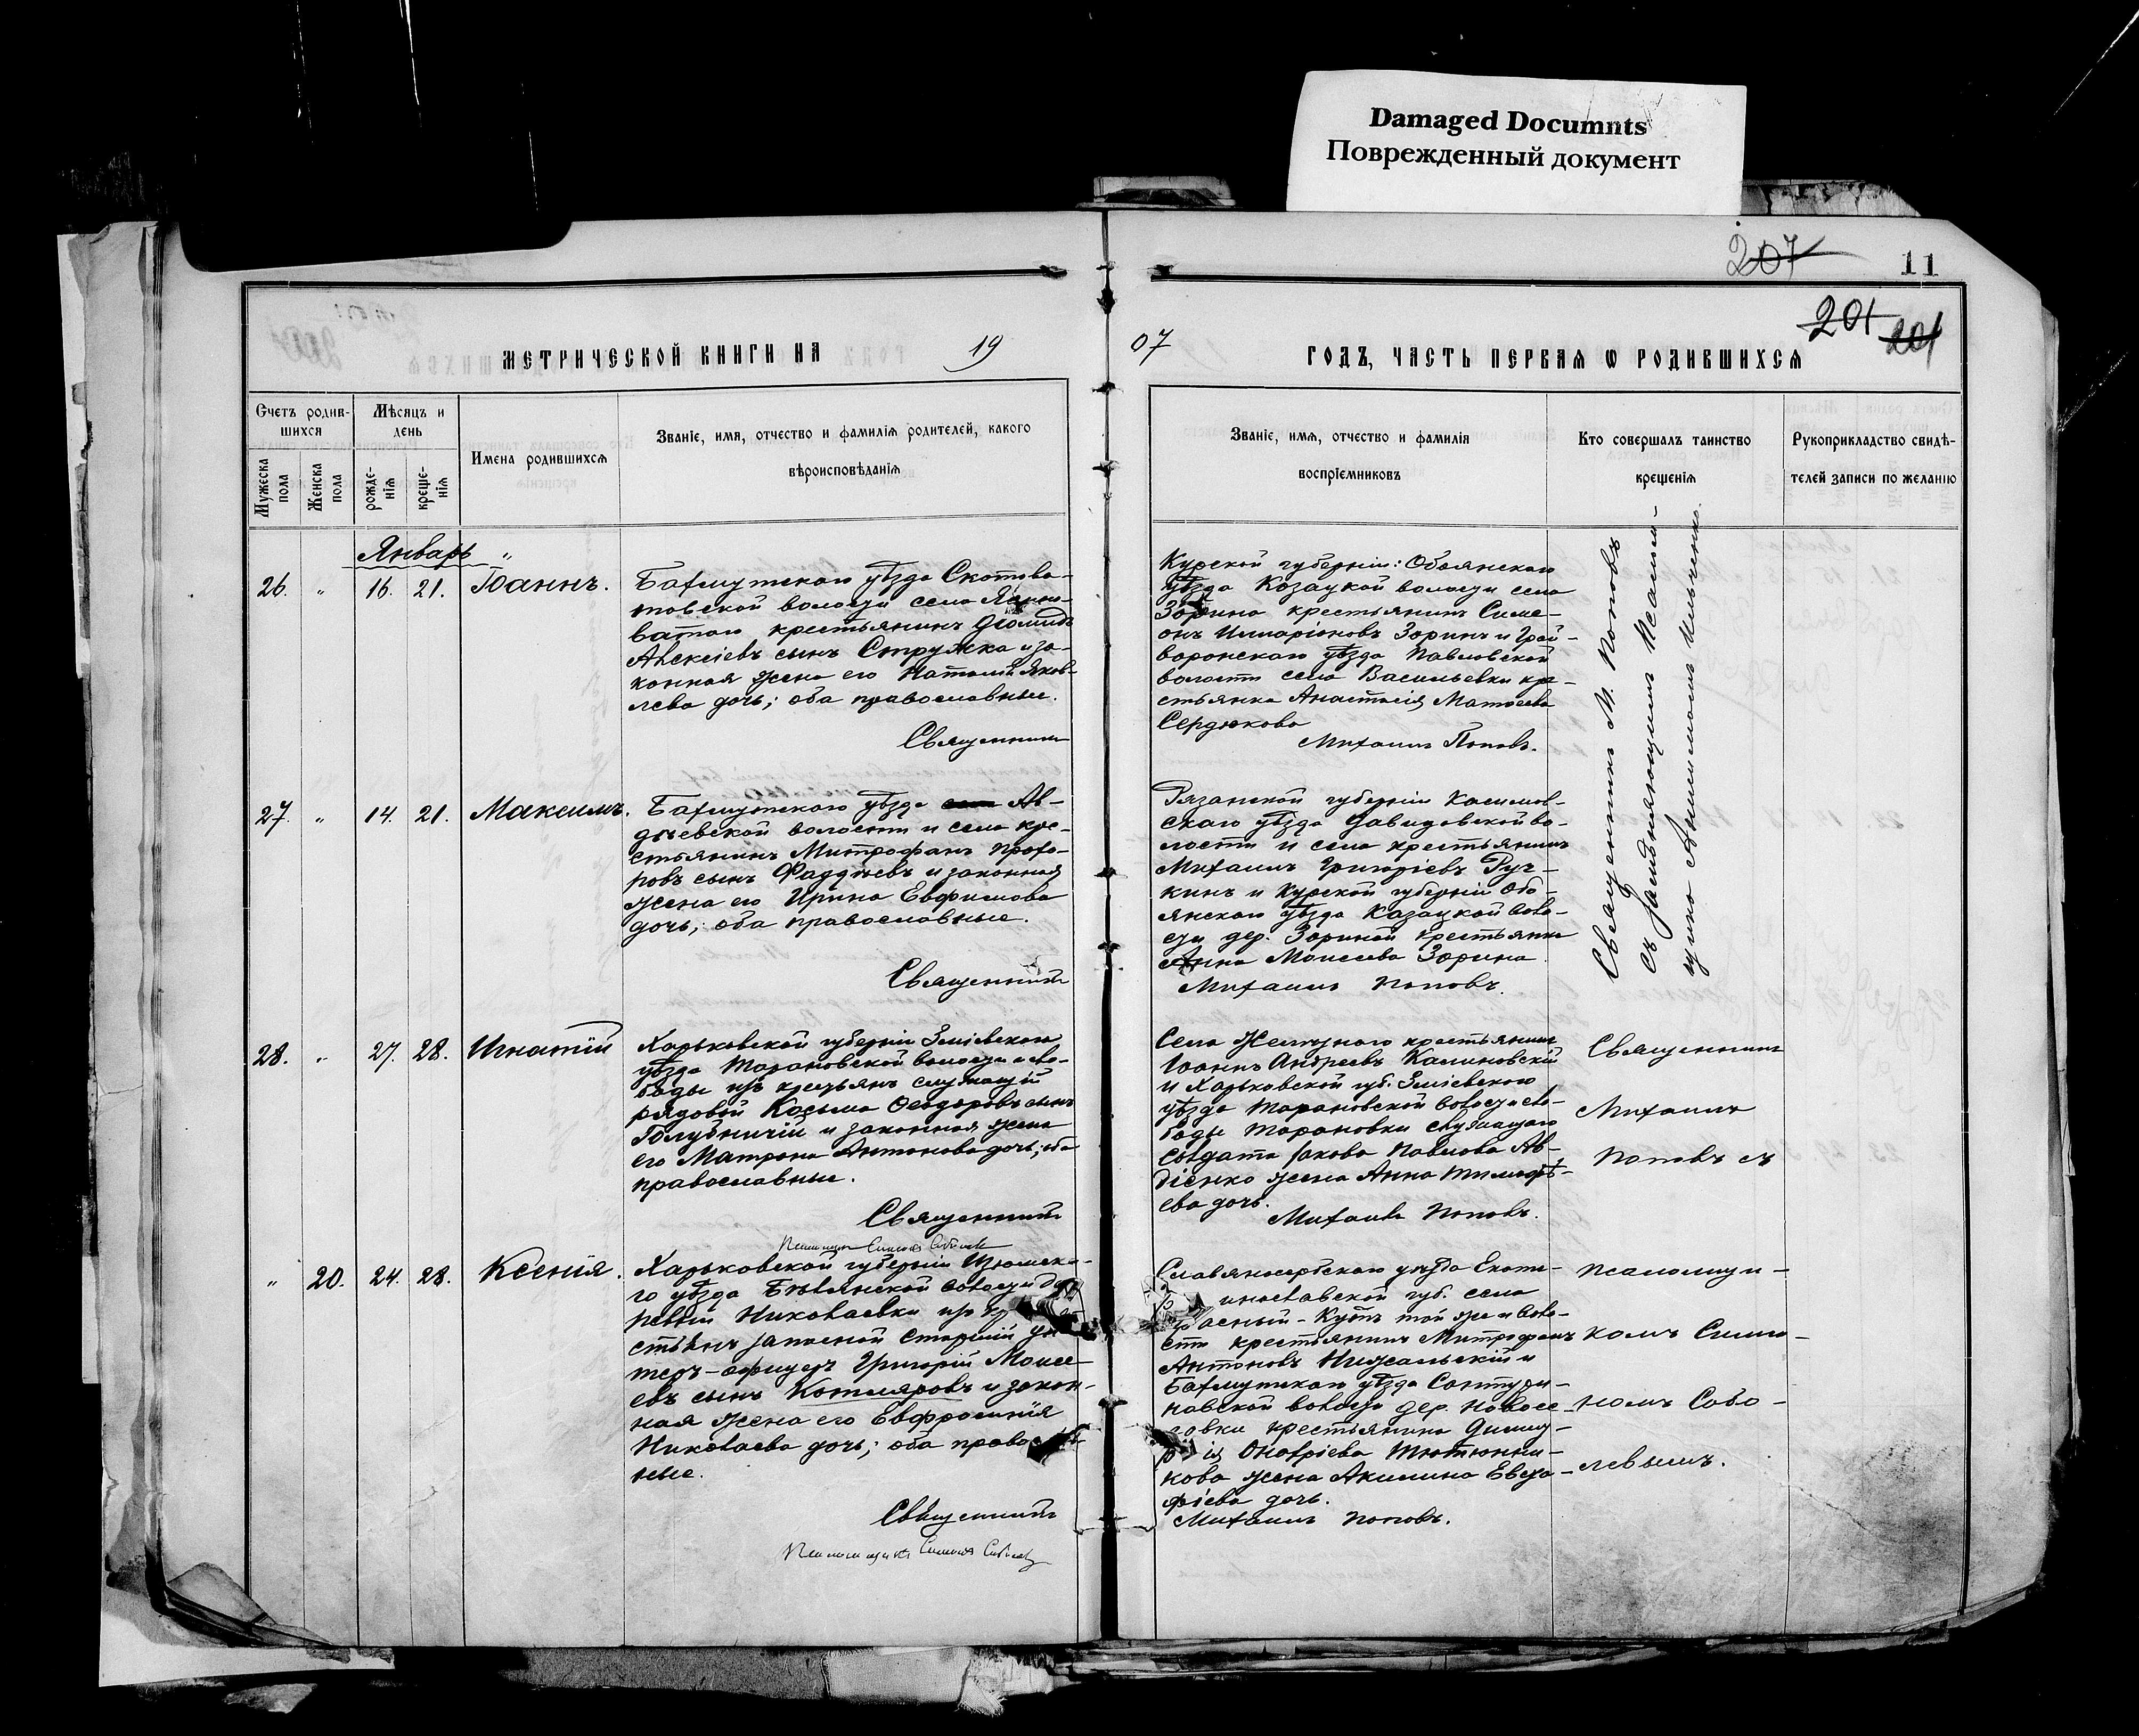 Damaged Documnts
Поврежденный документ
207
11
201
201
МЕТРИЧЕСКОЙ КНИГИ НА 19
07 ГОДЪ, ЧАСТЬ ПЕРВАЯ Ѡ РОДИВШИХСЯ
Счетъ родив-
шихся
Мужеска пола
Женска пола
Мѣсяцъ и
день
рожде-
нія
креще-
нія
Имена родившихся
Званіе, имя, отчество и фамилія родителей, какого
вѣроисповѣданія
Званіе, имя, отчество и фамилія
воспріемниковъ
Кто совершалъ таинство
крещенія
Рукоприкладство свидѣ-
телей записи по желанію
Январь "
26. " 16. 21. Іоаннъ.
Бахмутскаго уѣзда Скотова-
товской волости села Ясино-
ватаго крестьянинъ Діомидъ
Алексіевъ сынъ Стружка и за-
конная жена его Наталія Яков-
лева дочь; оба православные.
Священникъ
Курской губерніи: Обоянскаго
уѣзда Козацкой волости села
Зорина крестьянинъ Симе-
онъ Илларіоновъ Зоринъ и Грай-
воронскаго уѣзда Павловской
волости села Васильевки кре-
стьянка Анастасія Матѳеева
Сердюкова
Михаилъ Поповъ.
Священникъ М. Поповъ
съ Псалом-
27. " 14. 21. Максимъ.
Бахмутскаго уѣзда Ав-
дѣевской волости и села кре-
стьянинъ Митрофанъ Прохо-
ровъ сынъ Фаддѣевъ и законная
жена его Ирина Евфимова
дочь; оба православные.
Священникъ
Рязанской губерніи Касимов-
скаго уѣзда Давидовской во-
лости и села крестьянинъ
Михаилъ Григоріевъ Руч-
кинъ и Курской губерніи Обо-
янскаго уѣзда Казацкой воло-
сти дер. Зориной крестьянка
Анна Моисеева Зорина.
Михаилъ Поповъ.
28. " 27. 28. Игнатій
Харьковской губерніи Зміевскаго
уѣзда Тарановской волости и сло-
боды изъ крестьянъ служащій
рядовой Косьма Ѳеодоровъ сынъ
Голубничій и законная жена
его Матрона Антонова дочь; оба
православные.
Священникъ
Села Желтнаго крестьянинъ
Іоаннъ Андреевъ Калиновскій
и Харьковской губ. Зміевскаго
уѣзда Тарановской волости сло-
боды Тарановки служащаго
солдата Іакова Павлова Ав-
діенко жена Анна Тимоѳѣ-
ева дочь.
Михаилъ Поповъ.
Священникъ
Михаилъ
Поповъ съ
" 20. 24. 28. Ксенія.
Харьковской губерніи Изюмска-
го уѣзда Бѣлянской волости де-
ревни Николаевки изъ кре-
стьянъ запасной старшій ун-
теръ-офицеръ Григорій Моисе-
евъ сынъ Котляровъ и закон-
ная жена его Евфросинія
Николаева дочь; оба
ные.
Священникъ
Славяносербскаго уѣзда Екате-
инославской губ. села
расный-Кутъ той же воло-
сти крестьянинъ Митрофанъ
Антоновъ Нижальскій и
Бахмутскаго уѣзда Санту
новской волости дер. Новосе-
ловки крестьянина Дими-
рія Онофріева Тютюнни-
кова жена Акилина Евста-
фіева дочь.
Михаилъ Поповъ.
псаломщи-
комъ Симе-
номъ Собо-
левымъ.